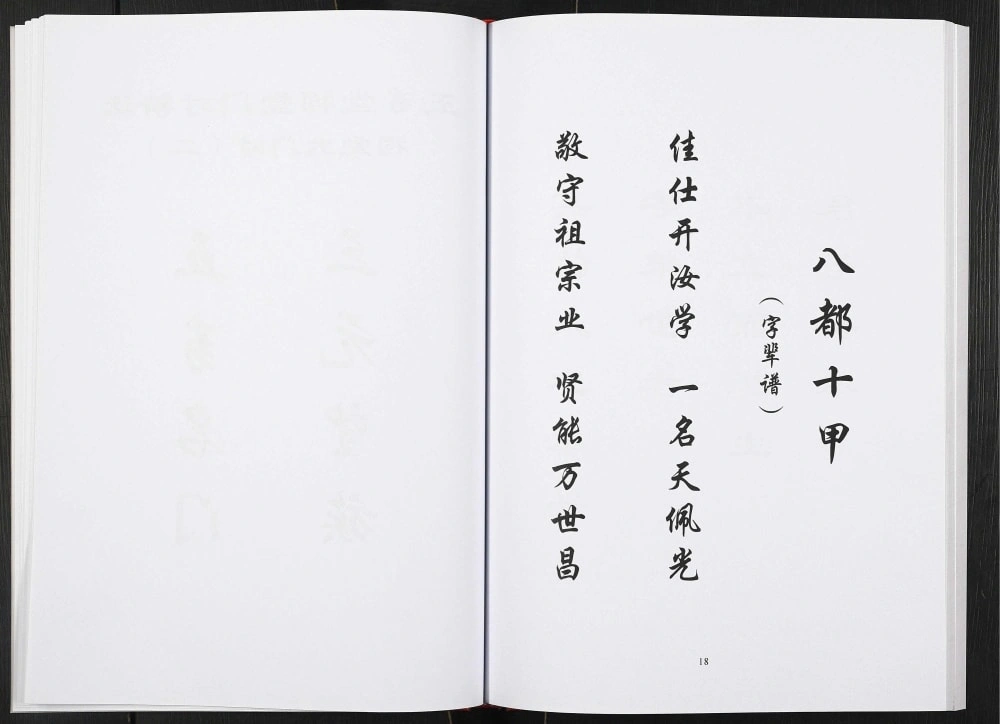 八都十甲
（字辈谱）
佳仕开汝学 一名天佩光
敬守祖宗业 贤能万世昌
18